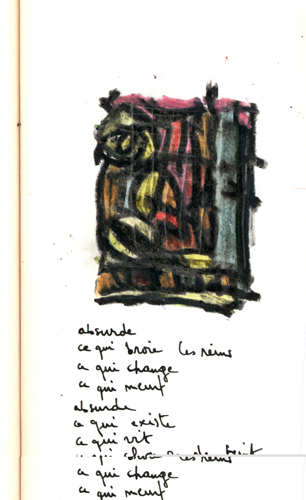 absurde
ce qui broie les reins
ce qui change
ce qui meurt
absurde
ce qui existe
ce qui vit
ce qui
ce qui change
ce qui meurt